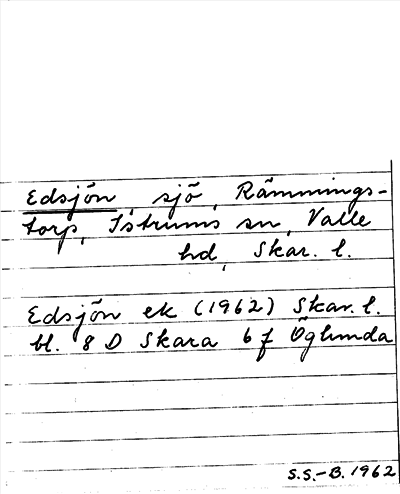 Edsjön, sjö, Rämmings-
torp, Istrums sn, Valle
hd, Skar. l.
Edsjön ek (1962) Skar. l.
bl. 8 D Skara 6 f Öglunda
S.S.-B. 1962